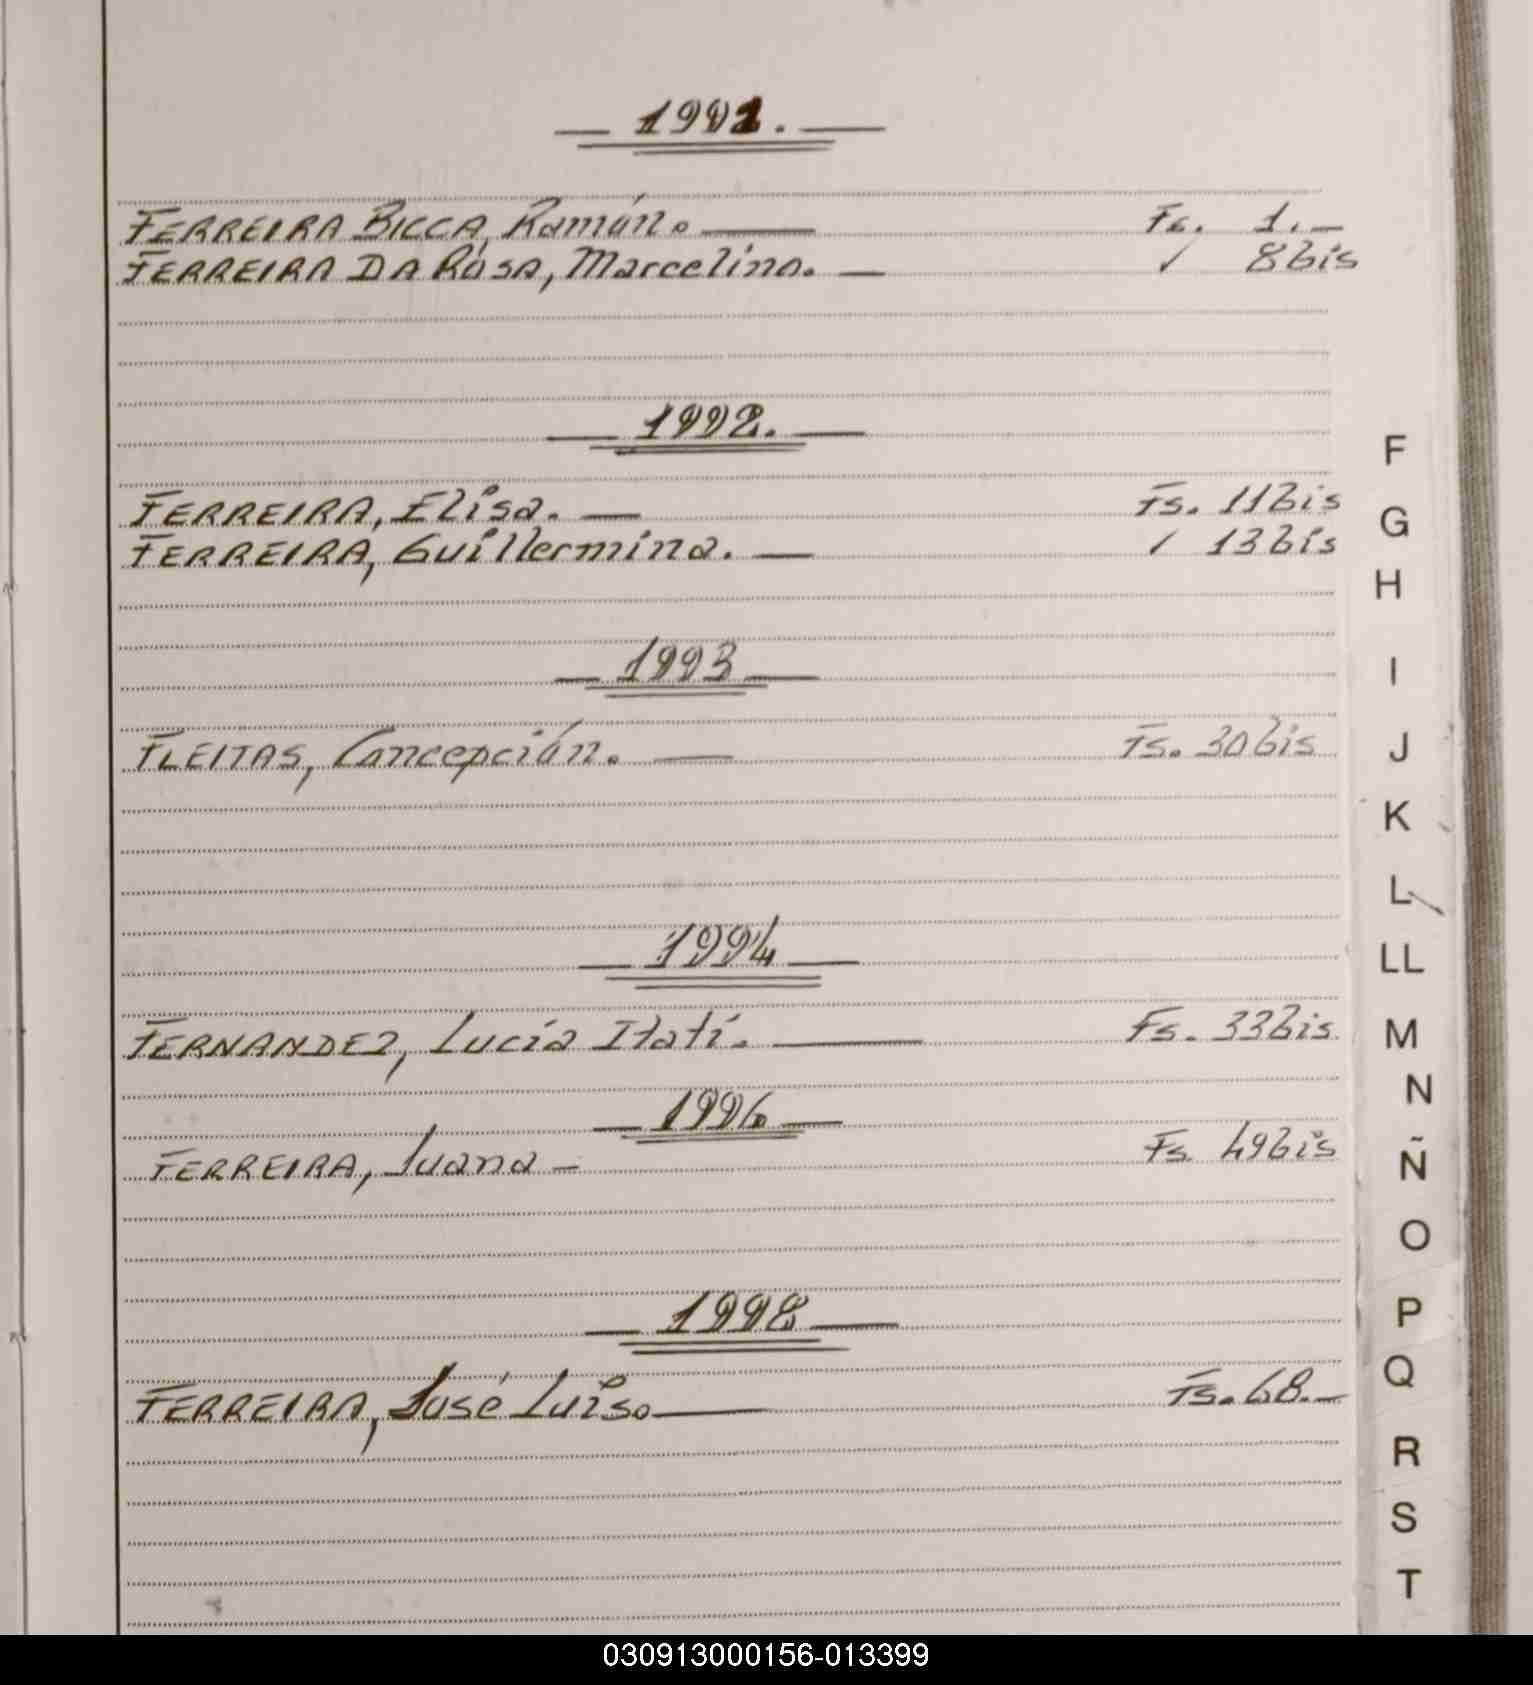 1991.
FERREIRA BICCA, Ramón. Fs. 1.
FERREIRA DA ROSA, Marcelino. ✓ 8bis
1992.
FERREIRA, Elisa. Fs. 11bis
FERREIRA, Guillermina. ✓ 13bis
1993
FLEITAS, Concepción. Fs. 30bis
1994
FERNANDEZ, Lucía Itatí. Fs. 33bis.
1996
FERREIRA, Juana Fs 49bis
1998
FERREIRA, José Luis. Fs. 68.
F
G
H
I
J
K
L
LL
M
N
Ñ
O
P
Q
R
S
T
030913000156-013399